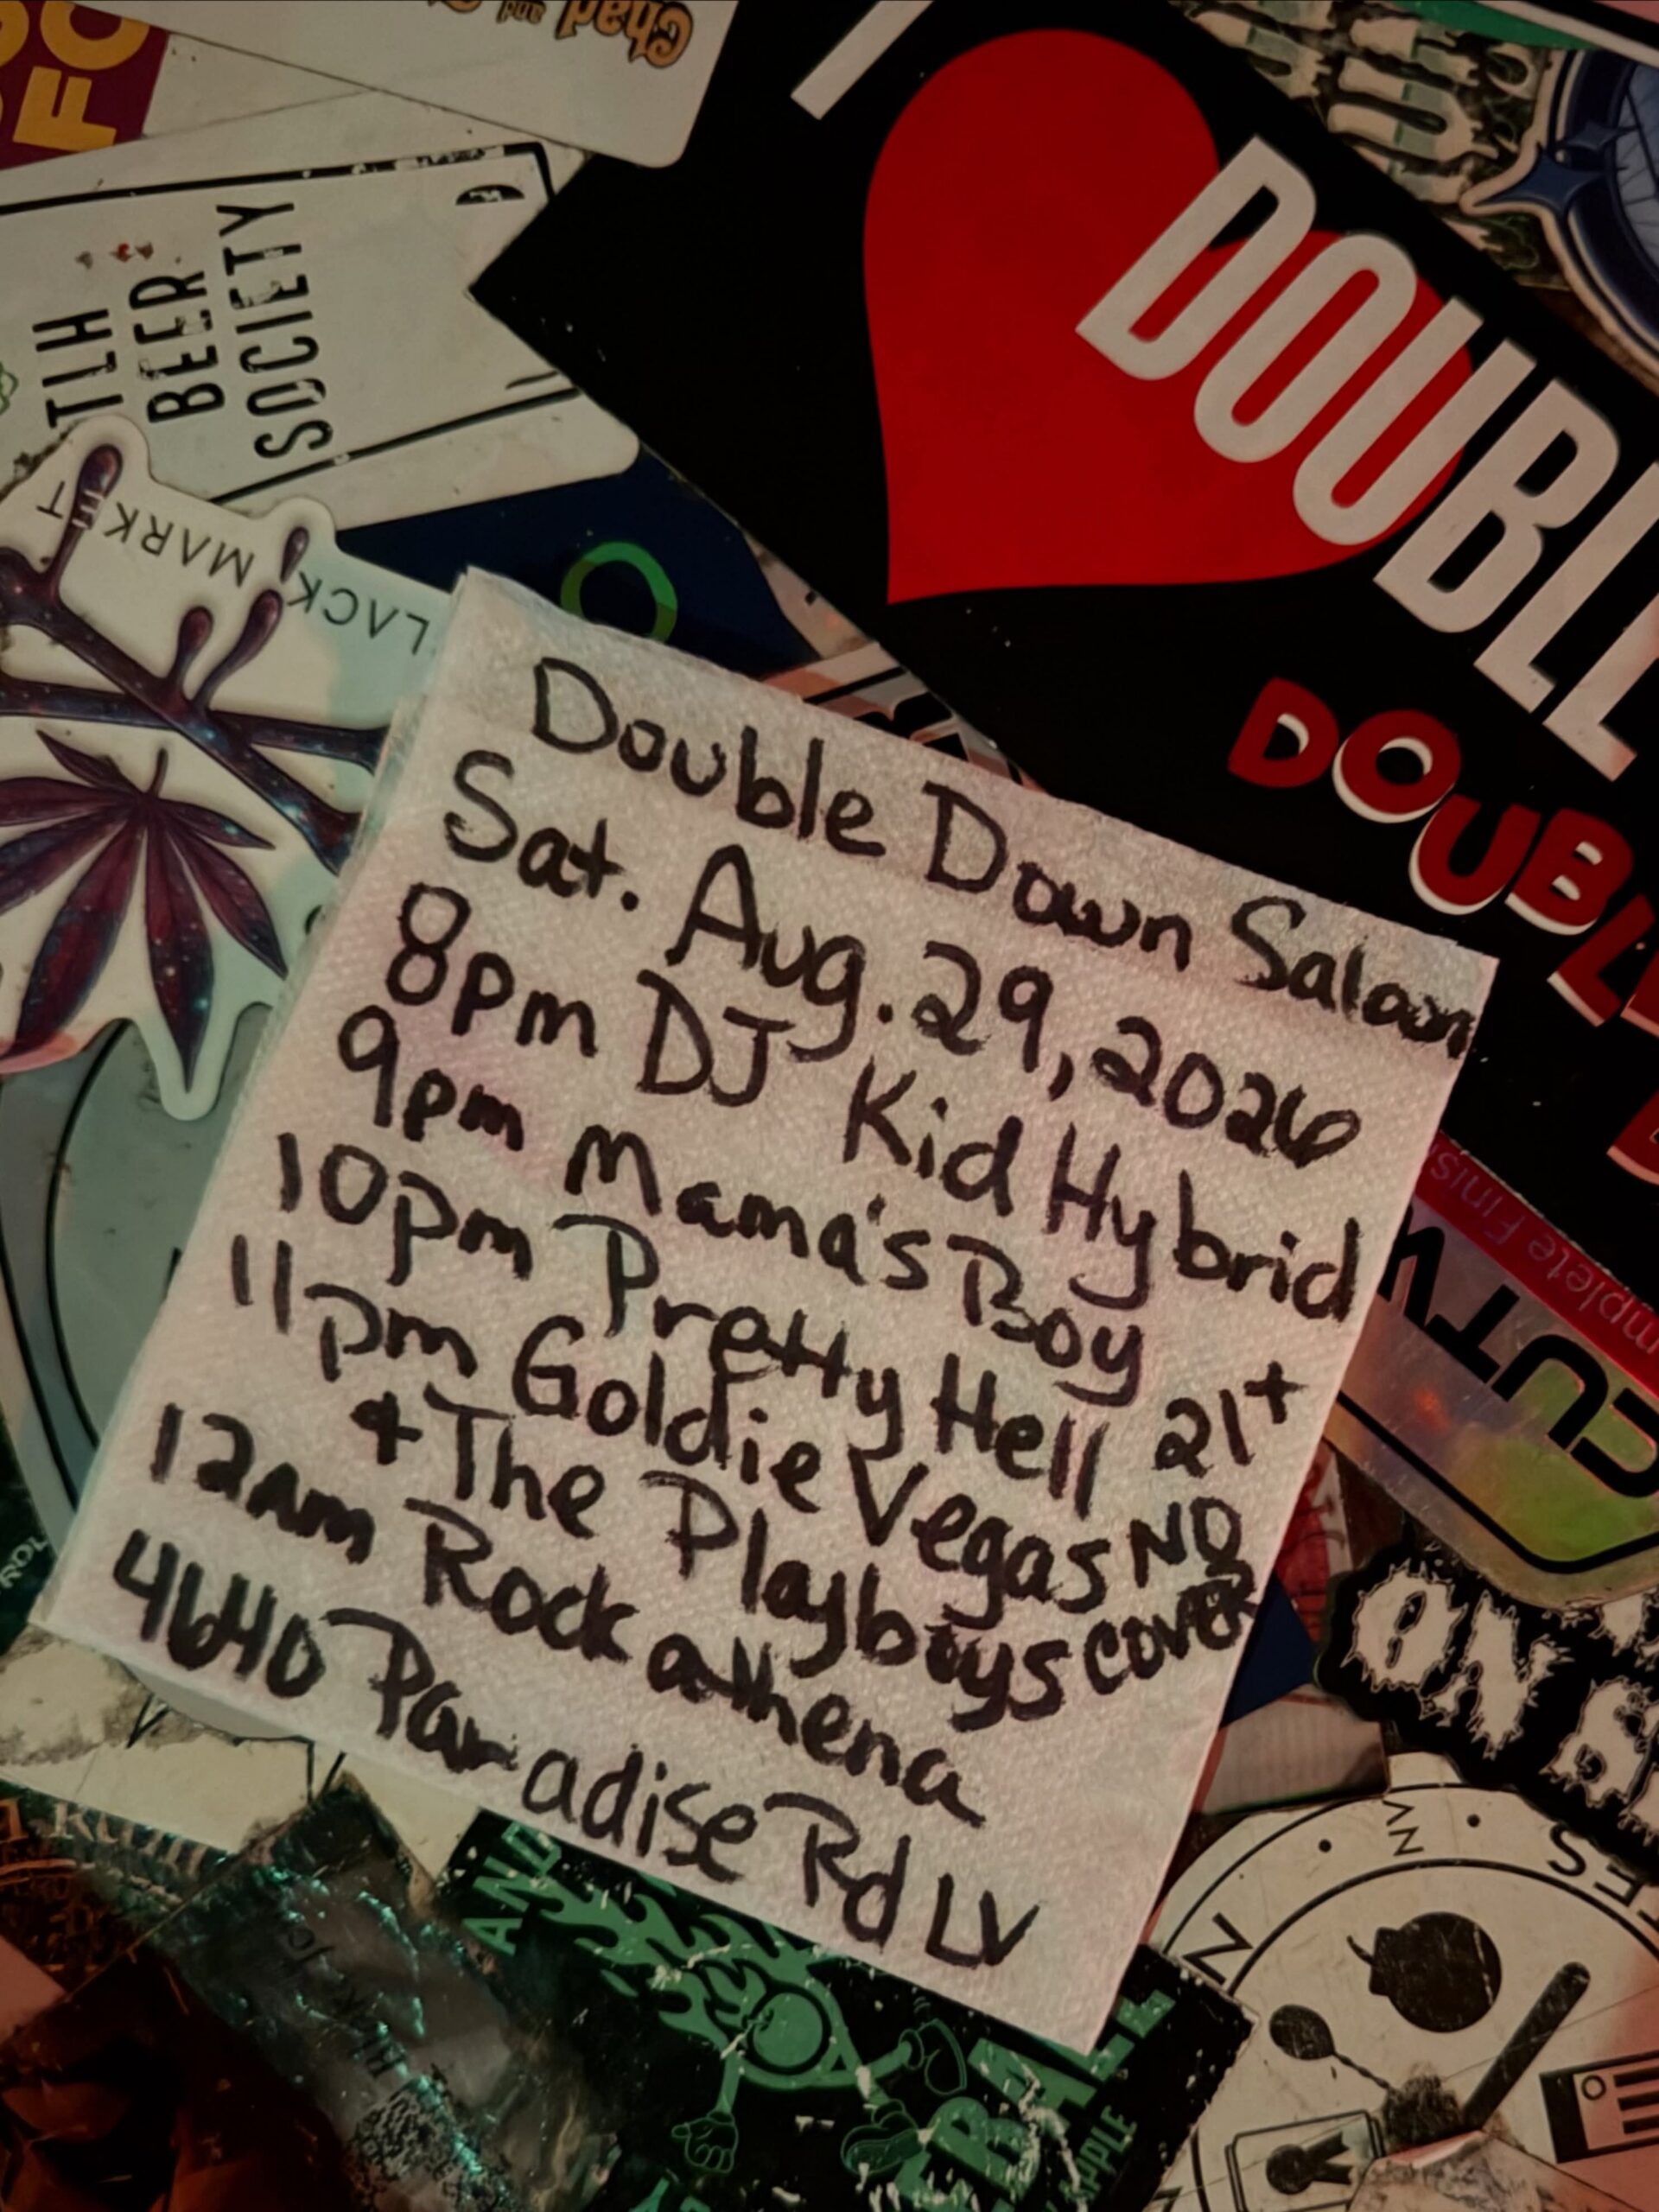 Chad and
FO
TLH
BEER
SOCIETY
I
DOUBL
DOUBLE
LACK MARKET
Double Down Saloon
Sat. Aug. 29, 2026
8pm DJ Kid Hybrid
9pm Mama's Boy
10pm Pretty Hell 21+
11pm Goldie Vegas NO
+ The Playboys COVER
12am Rock athena
4640 Paradise Rd LV
mplete Finis
CUTW
ON
AND
NV
ES
N
APPLE